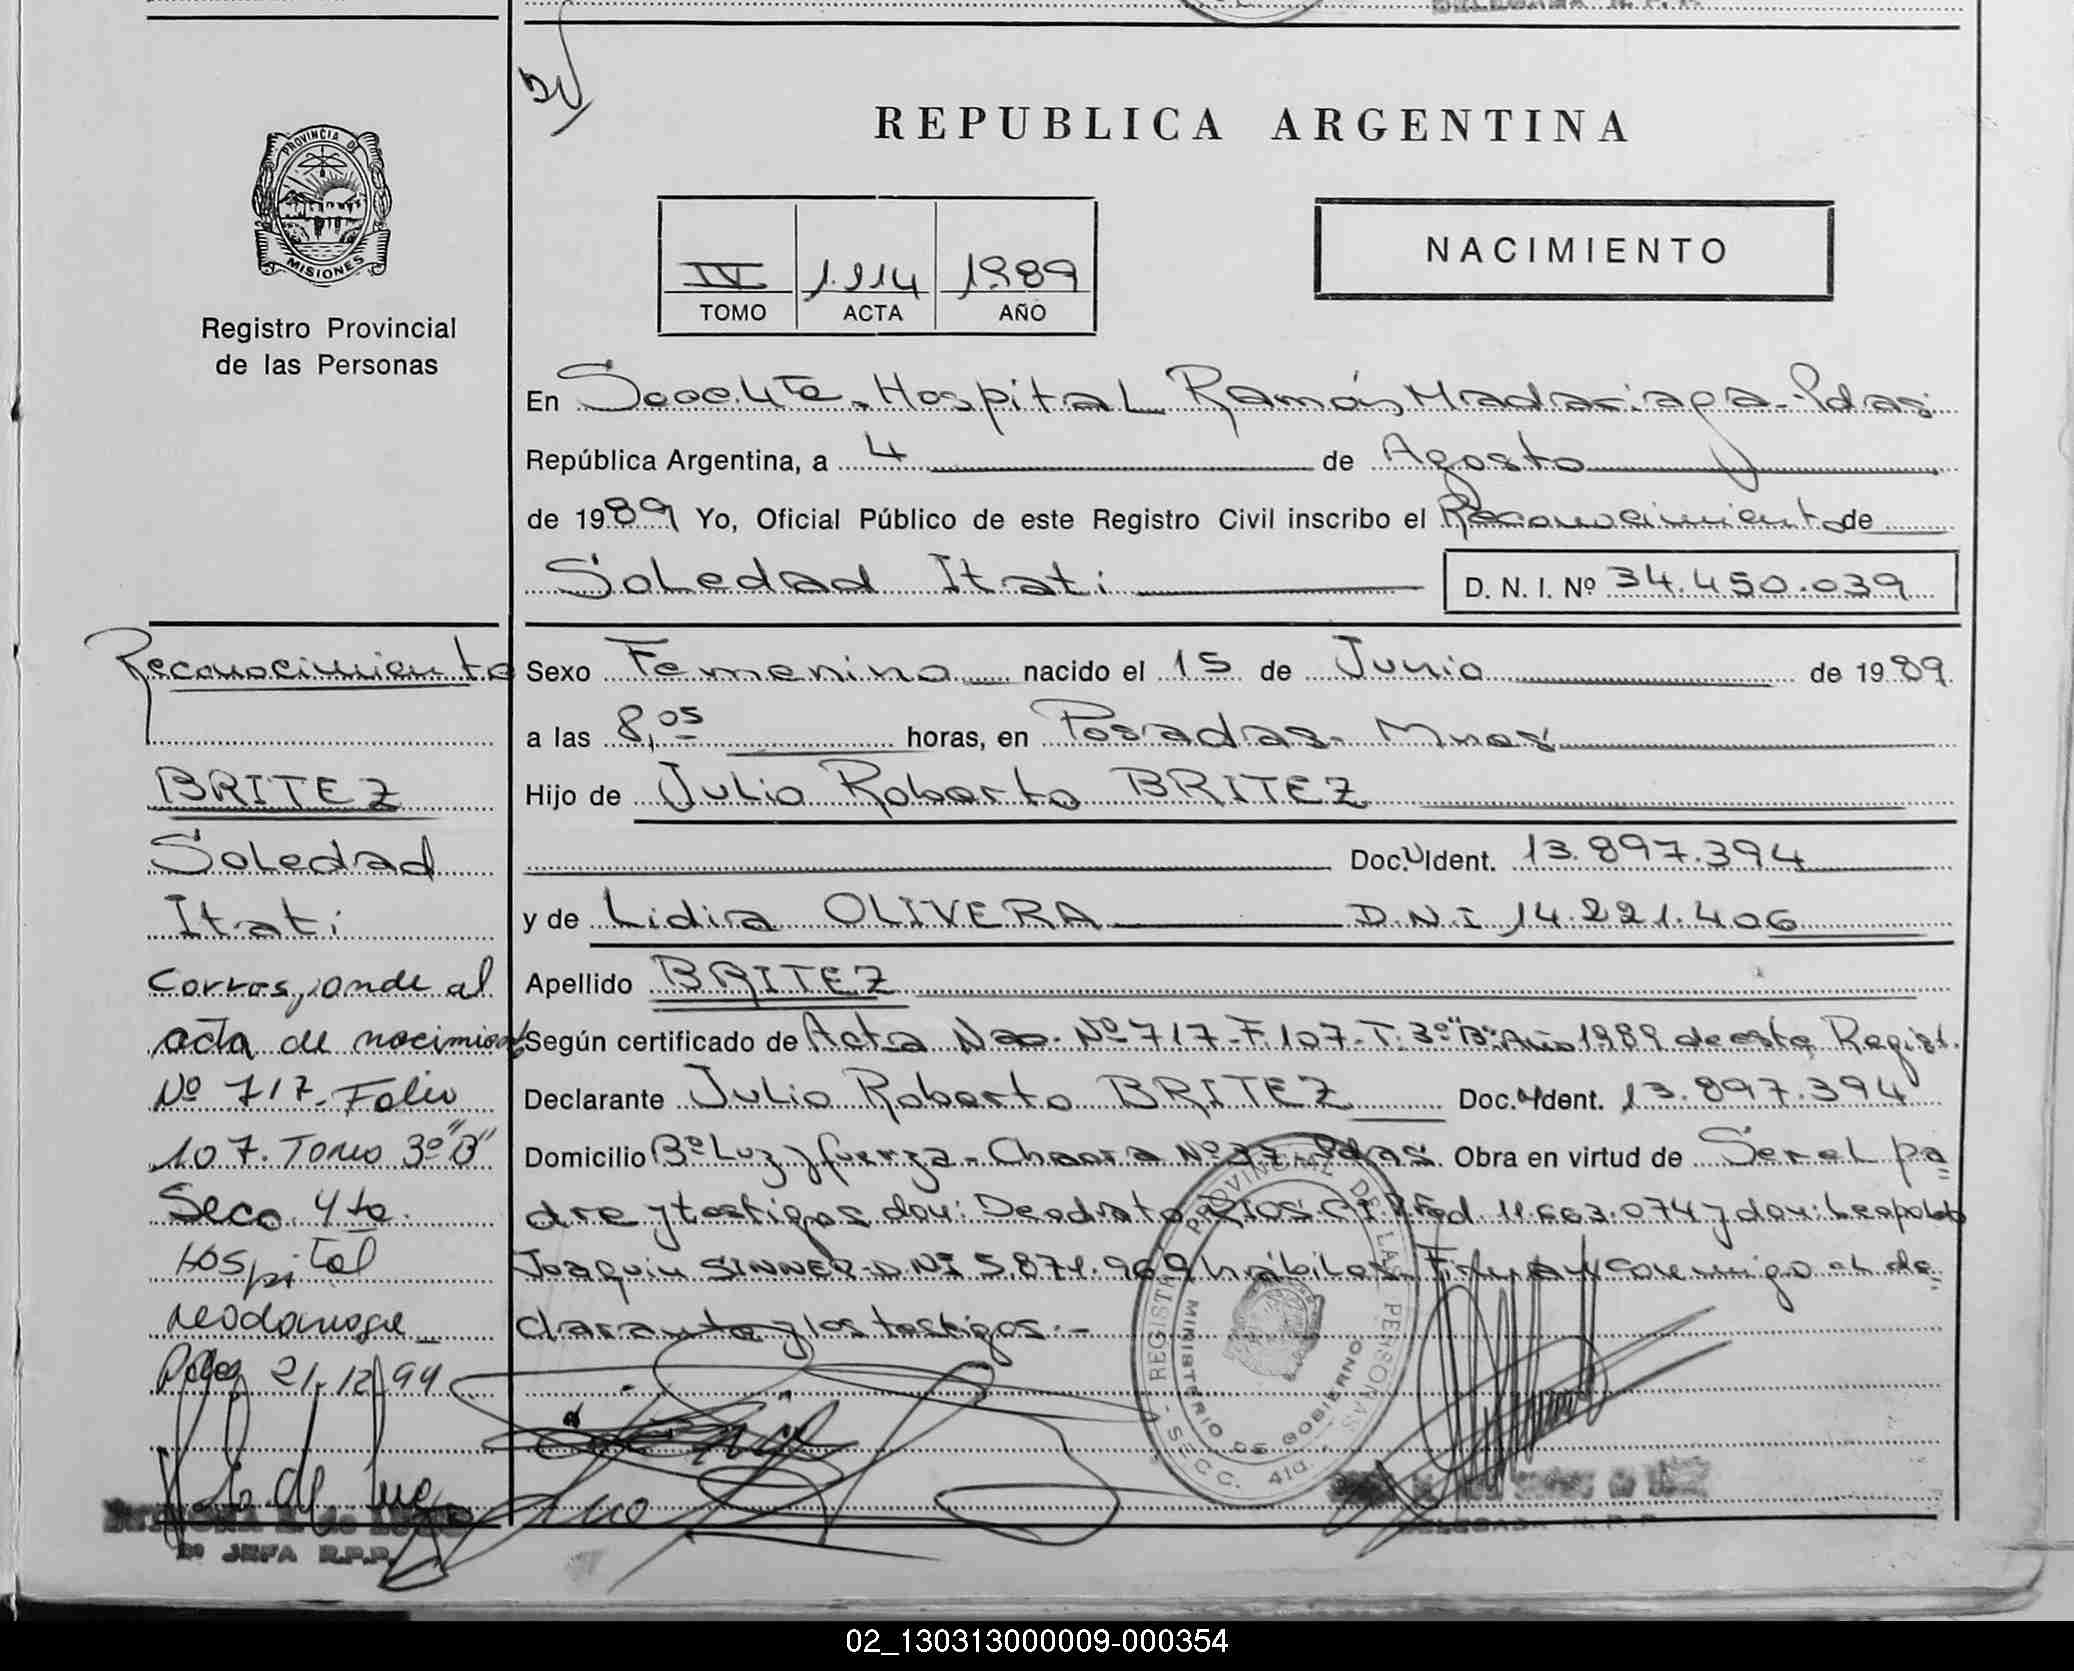 PROVINCIA DE
MISIONES
Registro Provincial
de las Personas
REPUBLICA ARGENTINA
NACIMIENTO
IV 1.114 1989
TOMO ACTA AÑO
En Secc. 4ta. Hospital Ramón Madariaga - Pdas
República Argentina, a 4 de Agosto
de 1989 Yo, Oficial Público de este Registro Civil inscribo el Reconocimiento de
Soledad Itati D. N. I. Nº 34.450.039
Reconocimiento
BRITEZ
Soledad
Itati
Corresponde al
acta de nacimiento
Nº 717- Folio
107. Tomo 3º "B"
Secc. 4ta.
Hospital
Madariaga
21-12-94
2º JEFA R.P.P.
Sexo Femenino nacido el 15 de Junio de 1989
a las 8,05 horas, en Posadas - Mnes
Hijo de Julio Roberto BRITEZ
Doc. Ident. 13.897.394
y de Lidia OLIVERA D.N.I 14.221.406
Apellido BRITEZ
Según certificado de Acta Nac. Nº 717-F.107-T.3º"B" Año 1989 de este Regist.
Declarante Julio Roberto BRITEZ Doc. Ident. 13.897.394
Domicilio Bº Luz y fuerza - Chacra Nº 37 - Pdas Obra en virtud de Ser el pa
dre y testigos don: Deodato RIOS C.I. 11.663.074 y don: Leopoldo
Joaquin SINNER D.N.I 5.871.969 hábiles. Firman conmigo el de
clarante y los testigos.-
REGISTRO PROVINCIAL DE LAS PERSONAS - SECC. 4ta.
MINISTERIO DE GOBIERNO
DELEGADA R. P. P.
02_130313000009-000354